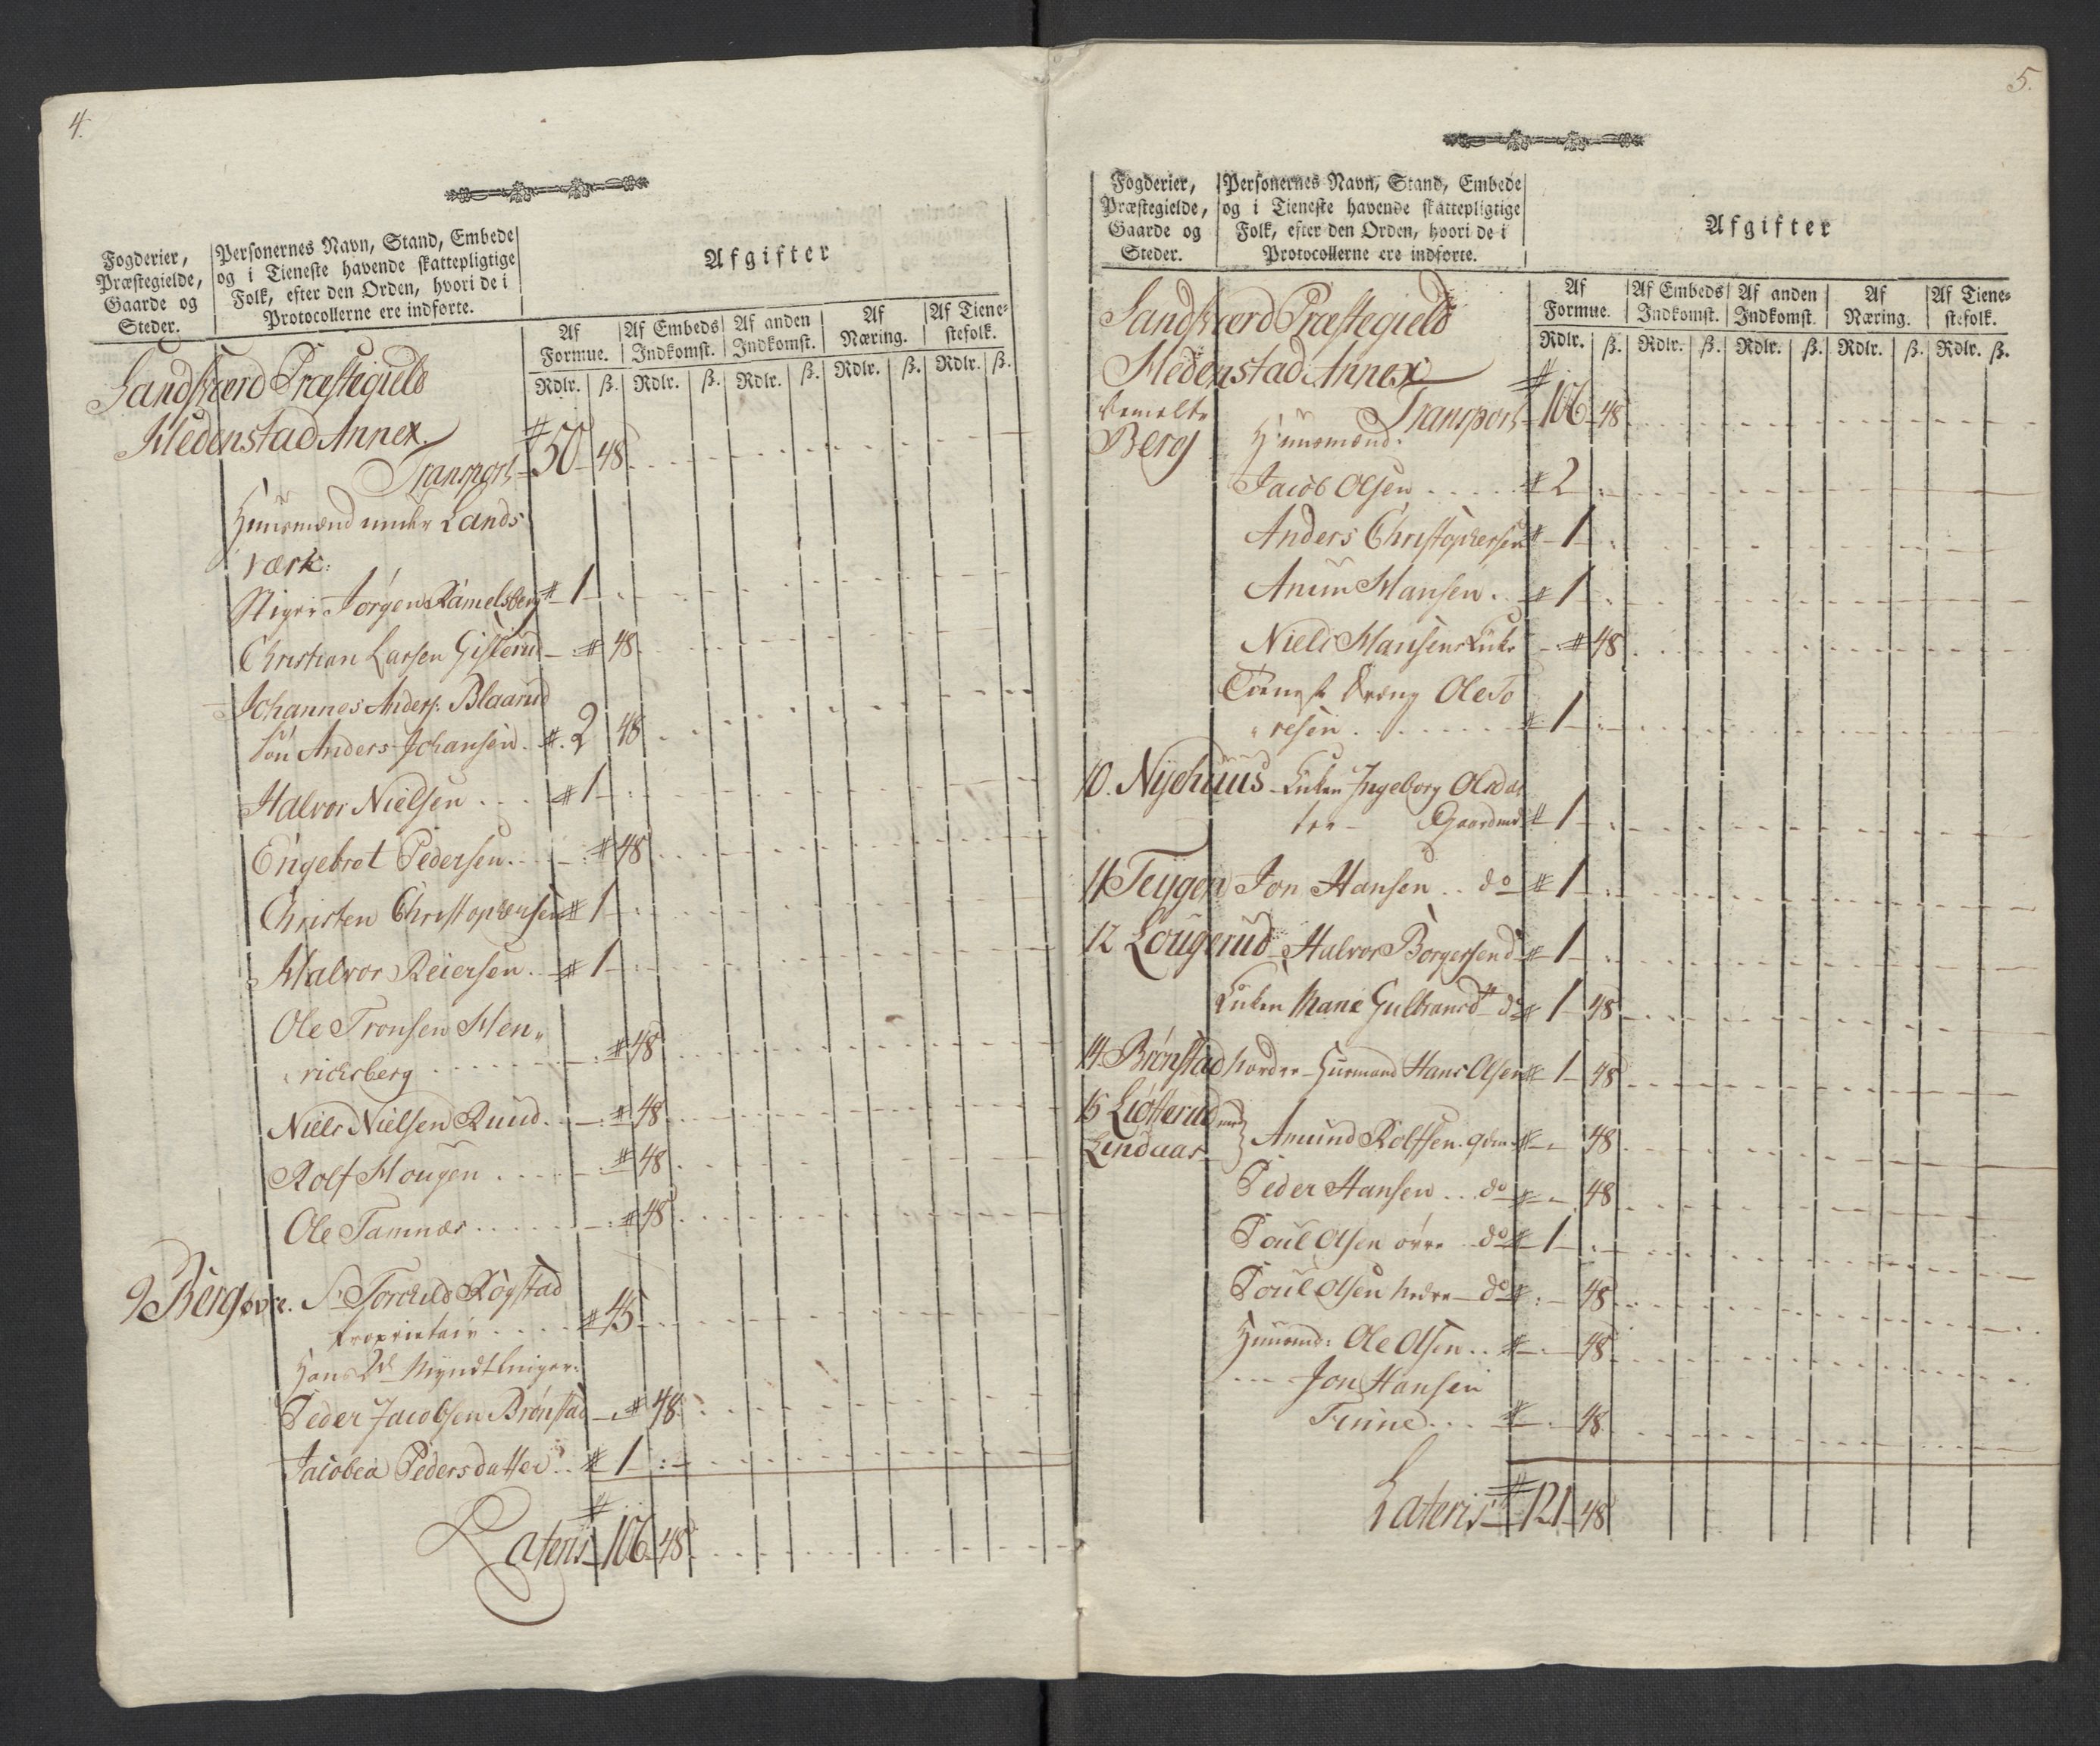 4.
Fogderier,
Præstegielde,
Gaarde og
Steder.
Personernes Navn, Stand, Embede
og i Tieneste havende skattepligtige
Folk, efter den Orden, hvori de i
Protocollerne ere indførte.
Afgifter
Af
Formue.
Af Embeds
Indkomst.
Af anden
Indkomst.
Af
Næring.
Af Tiene-
stefolk.
Rdlr. ß. Rdlr. ß. Rdlr. ß. Rdlr. ß. Rdlr. ß.
Sandsværd Præstegield
Hedenstad Annex.
Transport 50 48
Huusmænd under Lands
værk:
Stiger Jørgen Ramelsberg 1
Christian Larsen Gisterud 48
Johannes Anders: Blaarud
Søn Anders Johansen 2 48
Halvor Nielsen 1
Engebret Pedersen 48
Christen Christophersen 1
Halvor Reiersen 1
Ole Tronsen Hen
richsberg 48
Niels Nielsen Ruud 48
Rolf Hougen 48
Ole Tamnes 48
9 Berg øvre. Sr Torchild Rogstad
Proprietair 45
Hans Myndtlinger:
Peder Jacobsen Brønstad 48
Jacobea Pedersdatter 1
Lateris 106 48
5.
Fogderier,
Præstegielde,
Gaarde og
Steder.
Personernes Navn, Stand, Embede
og i Tieneste havende skattepligtige
Folk, efter den Orden, hvori de i
Protocollerne ere indførte.
Afgifter
Af
Formue.
Af Embeds
Indkomst.
Af anden
Indkomst.
Af
Næring.
Af Tiene-
stefolk.
Rdlr. ß. Rdlr. ß. Rdlr. ß. Rdlr. ß. Rdlr. ß.
Sandsværd Præstegield
Hedenstad Annex
Transport 106 48
Bemelte
Berg Huusmænd:
Jacob Olsen 2
Anders Christophersen 1
Anun Hansen 1
Niels Hansens Enke 48
Tieneste Dreng Ole To
resen 1
10. Nyehuus Enken Ingeborg Olsdat
ter Gaardmd 1
11 Teigen Jon Hansen do 1
12 Lougerud Halvor Borgersen do 1
Enken Marie Gulbransdr do 1 48
14. Brønstad nordre Husmand Hans Olsen 1 48
15 Liøsterud med
Lindaas Amund Rolfsen gdm 48
Peder Hansen do 48
Poul Olsen øvre do 1
Poul Olsen nedre do 48
Huusmd: Ole Olsen 48
Jon Hansen
Finne 48
Lateris 121 48